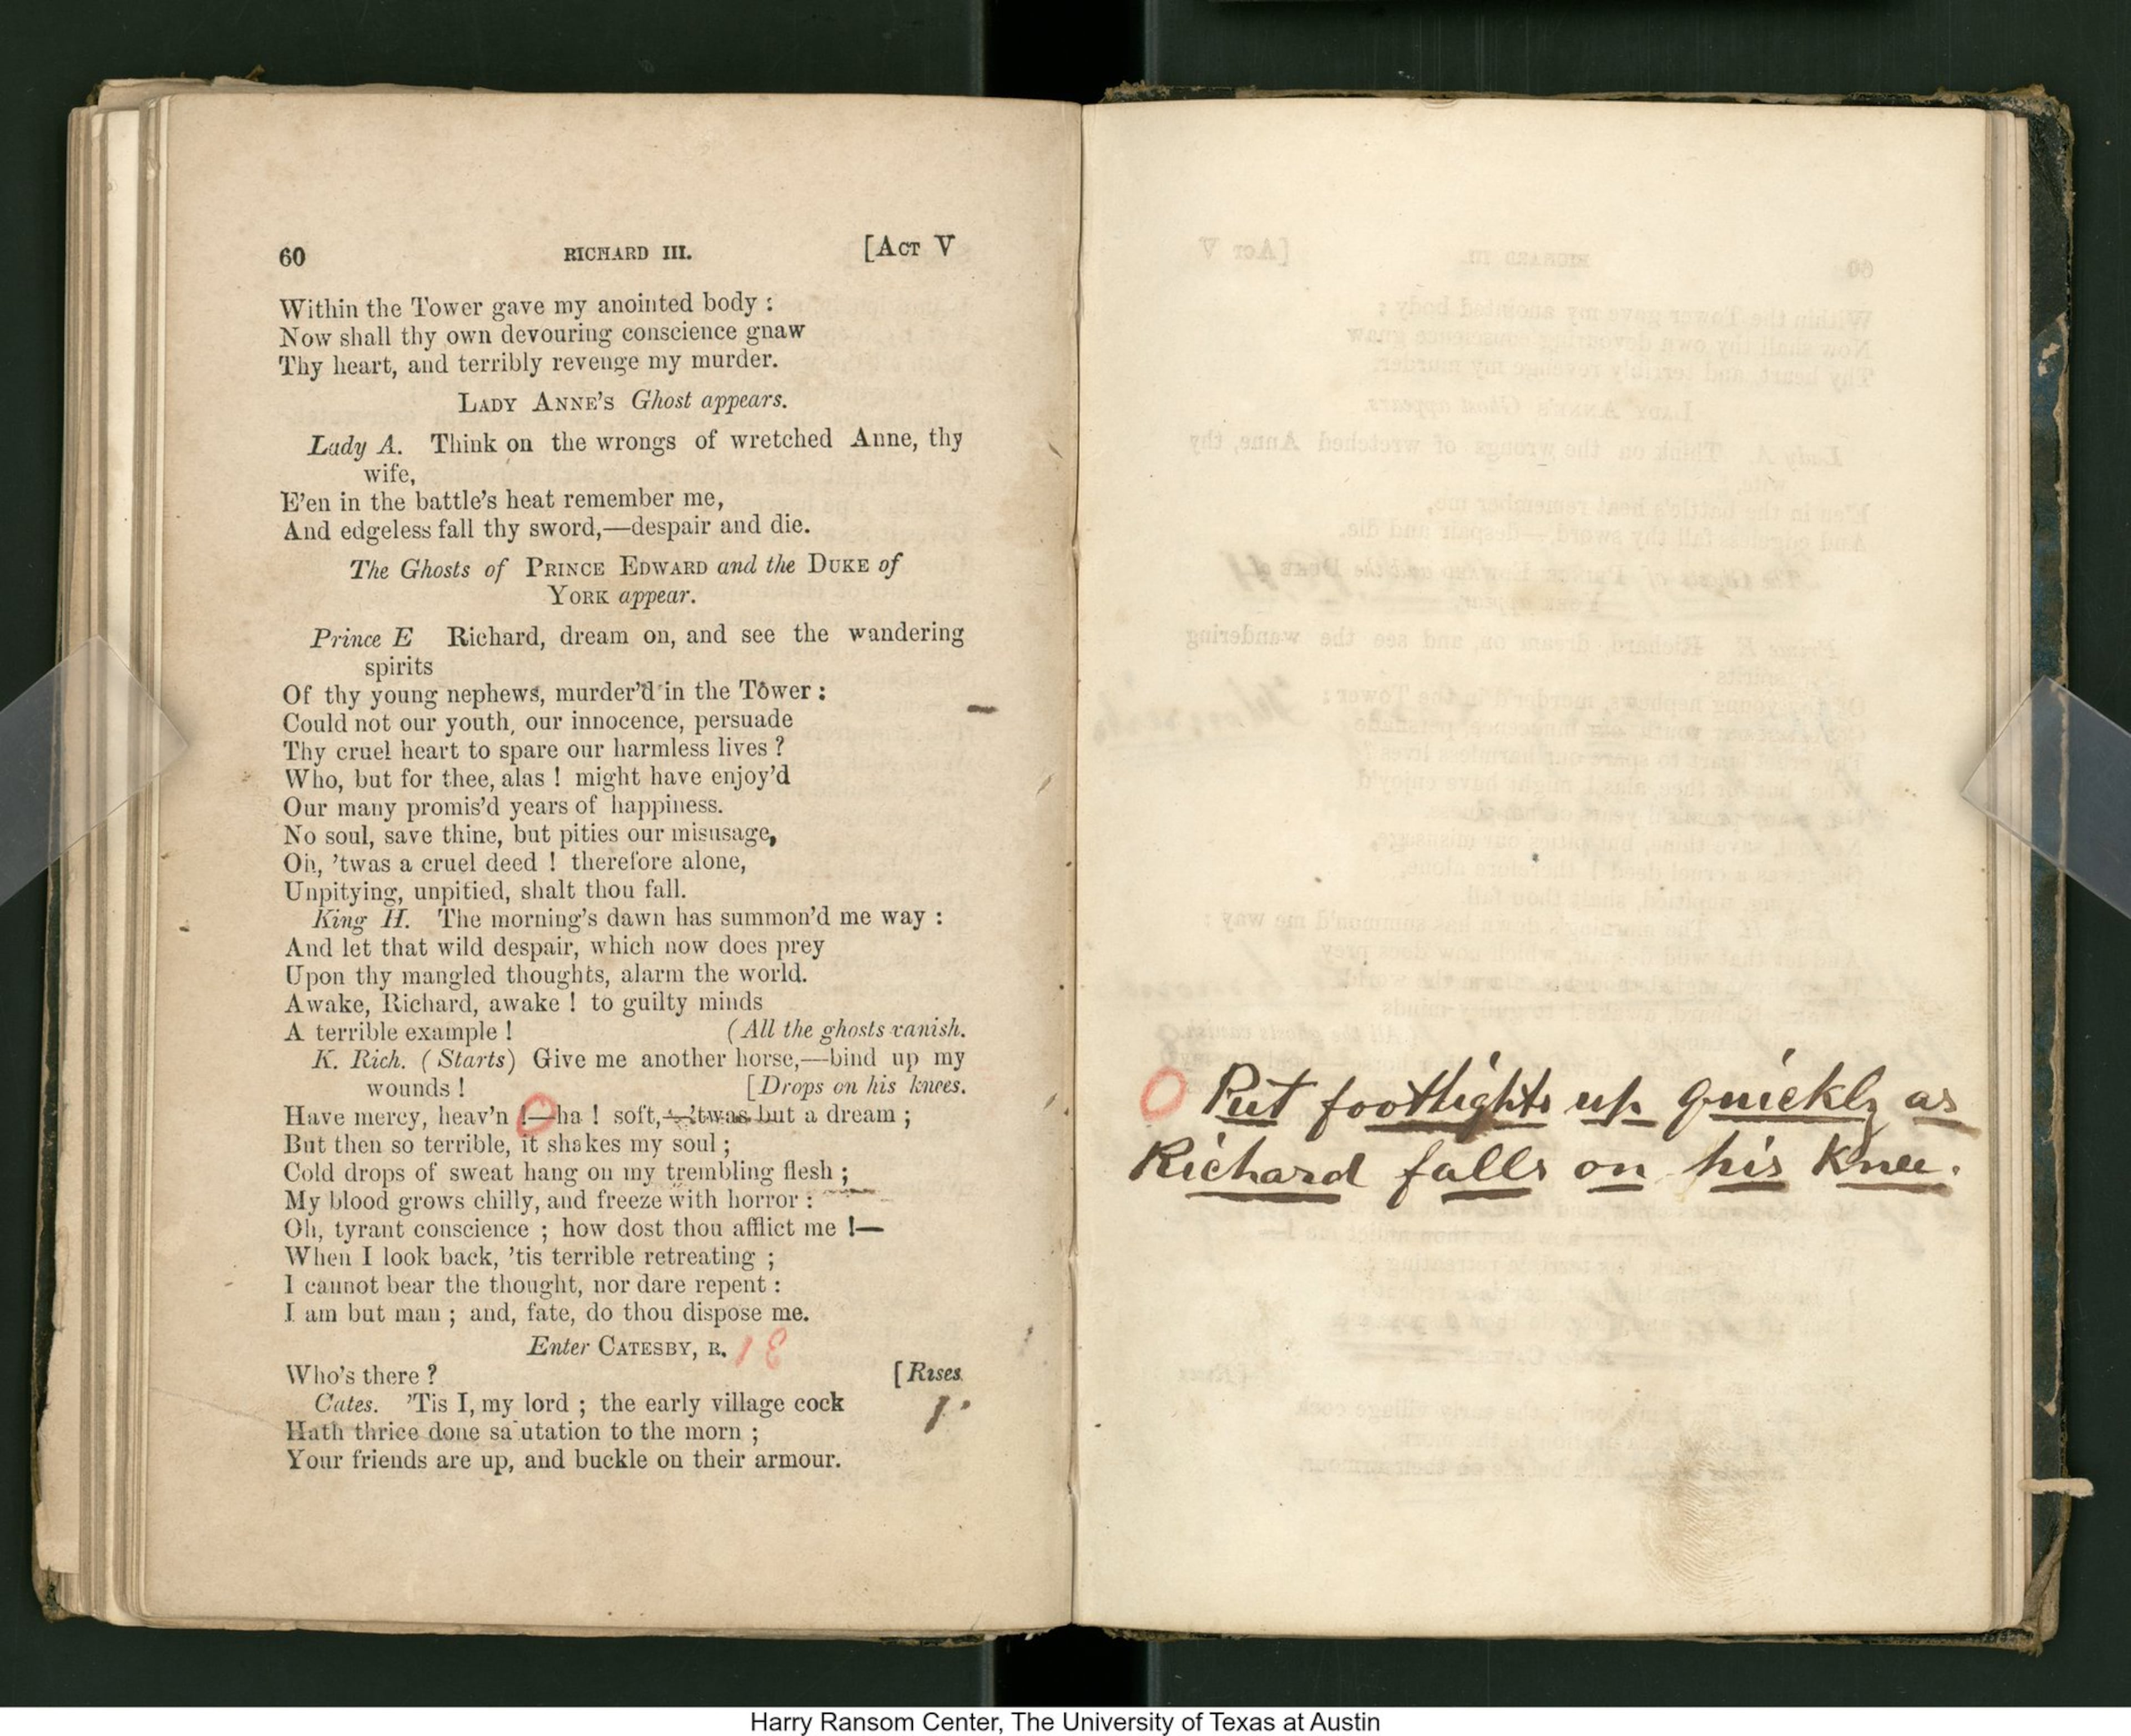 60 RICHARD III. [ACT V
Within the Tower gave my anointed body :
Now shall thy own devouring conscience gnaw
Thy heart, and terribly revenge my murder.
LADY ANNE'S Ghost appears.
Lady A. Think on the wrongs of wretched Anne, thy
wife,
E'en in the battle's heat remember me,
And edgeless fall thy sword,—despair and die.
The Ghosts of PRINCE EDWARD and the DUKE of
YORK appear.
Prince E Richard, dream on, and see the wandering
spirits
Of thy young nephews, murder'd in the Tower :
Could not our youth, our innocence, persuade
Thy cruel heart to spare our harmless lives ?
Who, but for thee, alas ! might have enjoy'd
Our many promis'd years of happiness.
No soul, save thine, but pities our misusage,
Oh, 'twas a cruel deed ! therefore alone,
Unpitying, unpitied, shalt thou fall.
King H. The morning's dawn has summon'd me way :
And let that wild despair, which now does prey
Upon thy mangled thoughts, alarm the world.
Awake, Richard, awake ! to guilty minds
A terrible example ! (All the ghosts vanish.
K. Rich. (Starts) Give me another horse,—bind up my
wounds ! [Drops on his knees.
Have mercy, heav'n !—ha ! soft,—'twas but a dream ;
But then so terrible, it shakes my soul ;
Cold drops of sweat hang on my trembling flesh ;
My blood grows chilly, and freeze with horror :
Oh, tyrant conscience ; how dost thou afflict me !—
When I look back, 'tis terrible retreating ;
I cannot bear the thought, nor dare repent :
I am but man ; and, fate, do thou dispose me.
Enter CATESBY, R.
Who's there ? [Rises.
Cates. 'Tis I, my lord ; the early village cock
Hath thrice done sa utation to the morn ;
Your friends are up, and buckle on their armour.
O Put footlights up quickly as
Richard falls on his knee.
Harry Ransom Center, The University of Texas at Austin